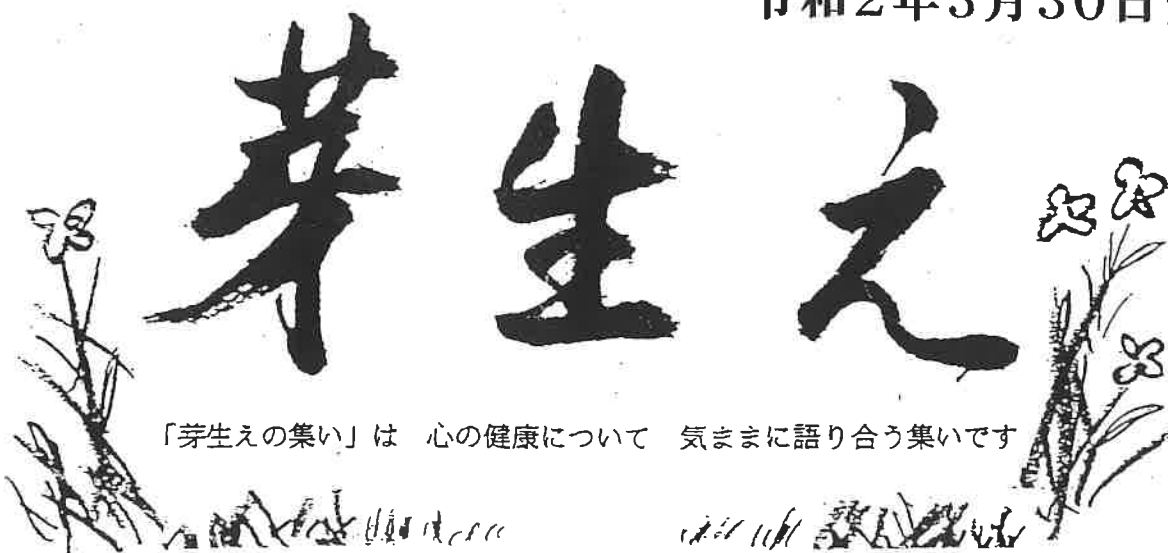 令和2年3月30日
芽生え
「芽生えの集い」は 心の健康について 気ままに語り合う集いです